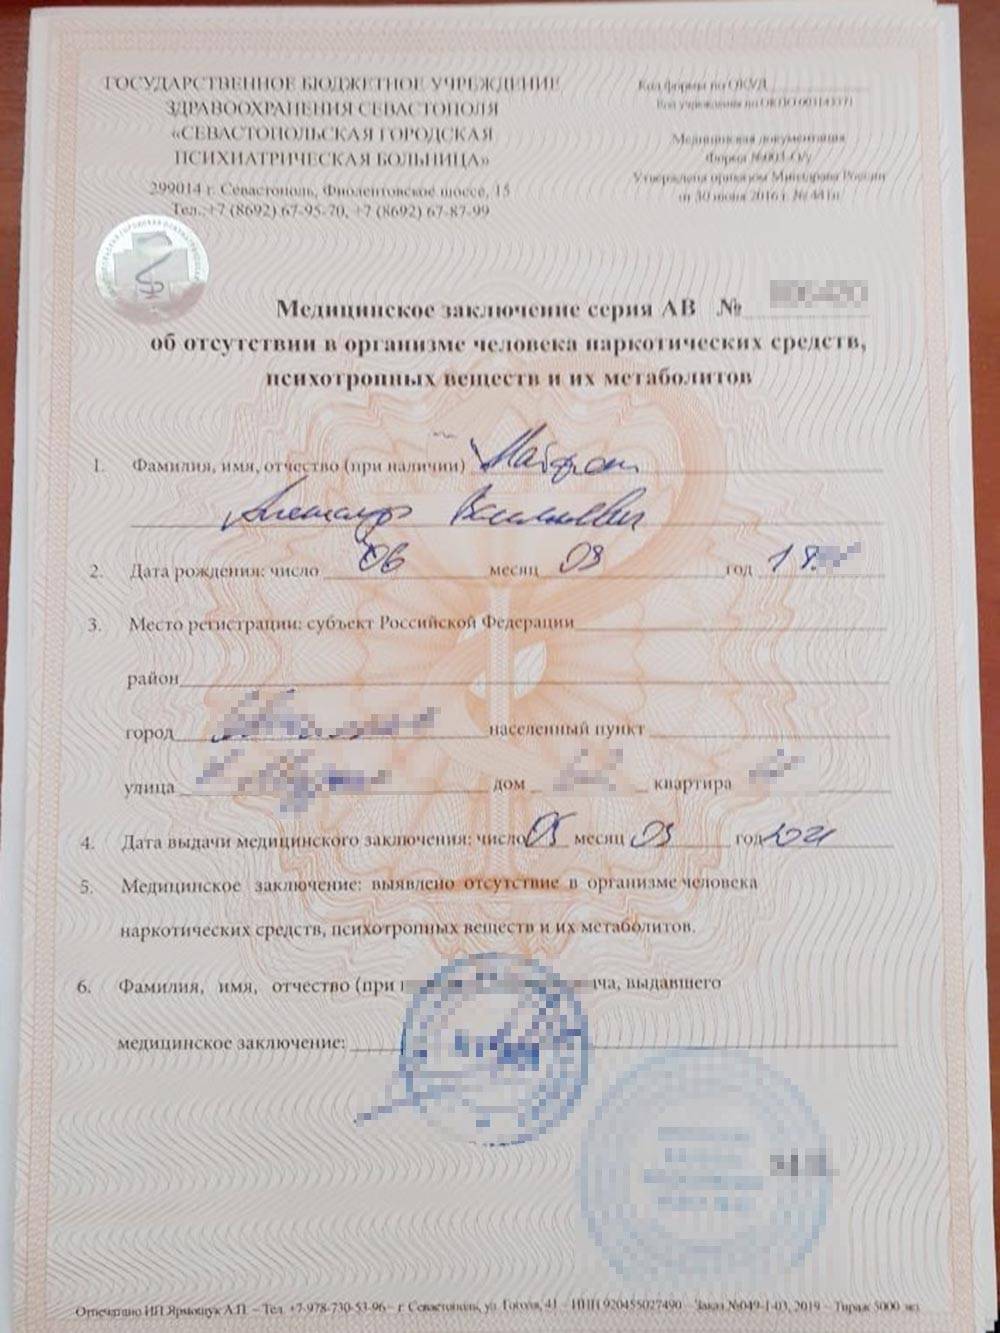 ГОСУДАРСТВЕННОЕ БЮДЖЕТНОЕ УЧРЕЖДЕНИЕ
ЗДРАВООХРАНЕНИЯ СЕВАСТОПОЛЯ
«СЕВАСТОПОЛЬСКАЯ ГОРОДСКАЯ
ПСИХИАТРИЧЕСКАЯ БОЛЬНИЦА»
299014 г. Севастополь, Фиолентовское шоссе, 15
Тел.:+7 (8692) 67-95-70, +7 (8692) 67-87-99
Код формы по ОКУД
Код учреждения по ОКПО
Медицинская документация
Форма №003-О/у
Утверждена приказом Минздрава России
от 30 июня 2016 г. № 441н
Медицинское заключение серия АВ №
об отсутствии в организме человека наркотических средств,
психотропных веществ и их метаболитов
1. Фамилия, имя, отчество (при наличии)
Александр Васильевич
2. Дата рождения: число 06 месяц 03 год
3. Место регистрации: субъект Российской Федерации
район
город населенный пункт
улица дом квартира
4. Дата выдачи медицинского заключения: число 05 месяц 03 год 2021
5. Медицинское заключение: выявлено отсутствие в организме человека
наркотических средств, психотропных веществ и их метаболитов.
6. Фамилия, имя, отчество (при выдавшего
медицинское заключение:
Отпечатано ИП Ярмощук А.П. – Тел. +7-978-730-53-96 – г. Севастополь, ул. Гоголя, 41 – ИНН 920455027490 – Заказ №049-1-03, 2019 – Тираж 5000 экз